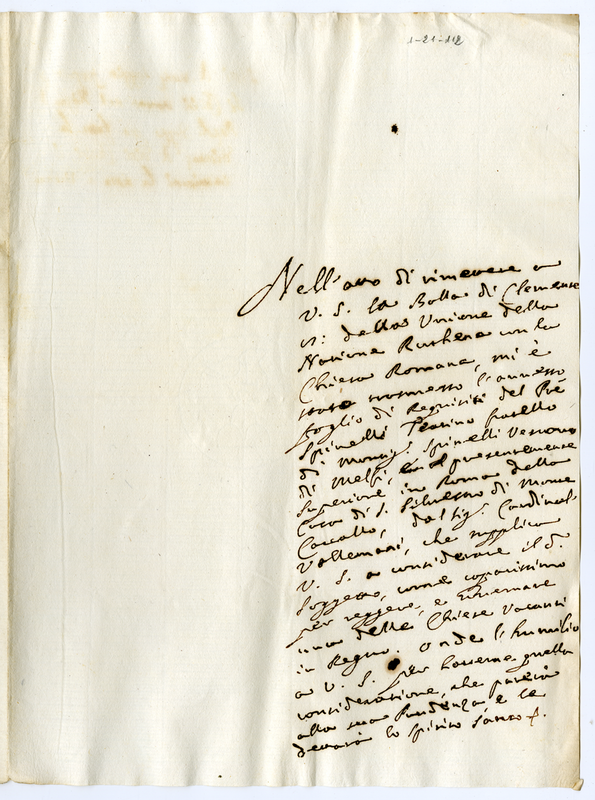 1-21-112
Nell'atto di rimettere a
V. S. la Bolla di Clemente
dell'Unione della
Natione Ruthena con la
Chiesa Romana, mi è
stato trasmesso l'annesso
foglio di Requisiti del Pre
Spinelli Teatino fratello
di Monsig. Spinelli Vescovo
di Melfi, presentemente
Superiore in Roma della
Casa di S. Silvestro di Monte
Cavallo, dal Sig. Cardinal
Vallemani, che supplica
V. S. a considerare il d.
Soggetto, come capacissimo
per reggere, e governare
una delle Chiese Vacanti
in Regno. Onde l'humilio
a V. S. per haverne quella
consideratione, che parerà
alla sua Prudenza, e le
detterà lo Spirito Santo